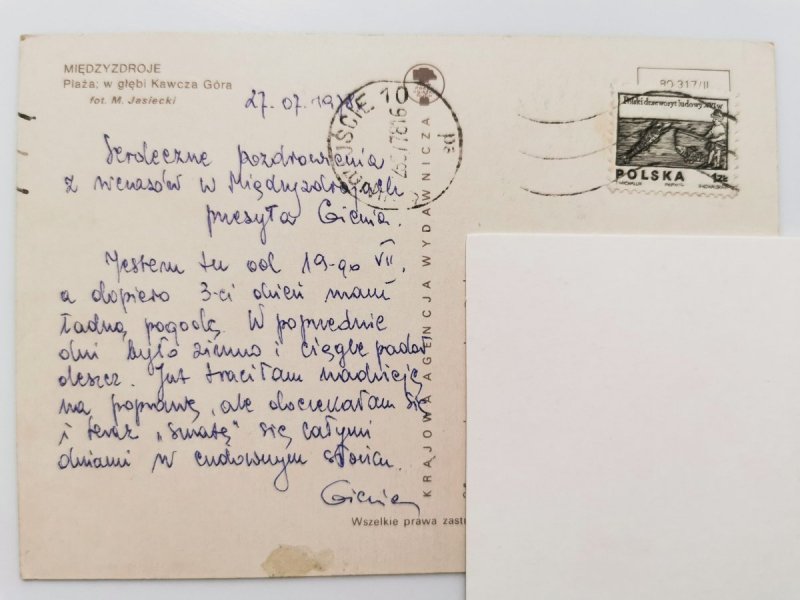 MIĘDZYZDROJE
Plaża; w głębi Kawcza Góra
fot. M. Jasiecki
27.07.1978
Serdeczne pozdrowienia
z wczasów w Międzyzdrojach
przesyła Gienia.
Jestem tu od 19-go VII,
a dopiero 3-ci dzień mam
ładną pogodę. W poprzednie
dni było zimno i ciągle padał
deszcz. Już traciłam nadzieję
na poprawę, ale doczekałam się
i teraz „smażę" się całymi
dniami w cudownym słońcu.
Gienia
Wszelkie prawa zastr
KRAJOWA AGENCJA WYDAWNICZA
10
80-317/II
Polski drzeworyt ludowy XVI w.
POLSKA 1ZŁ